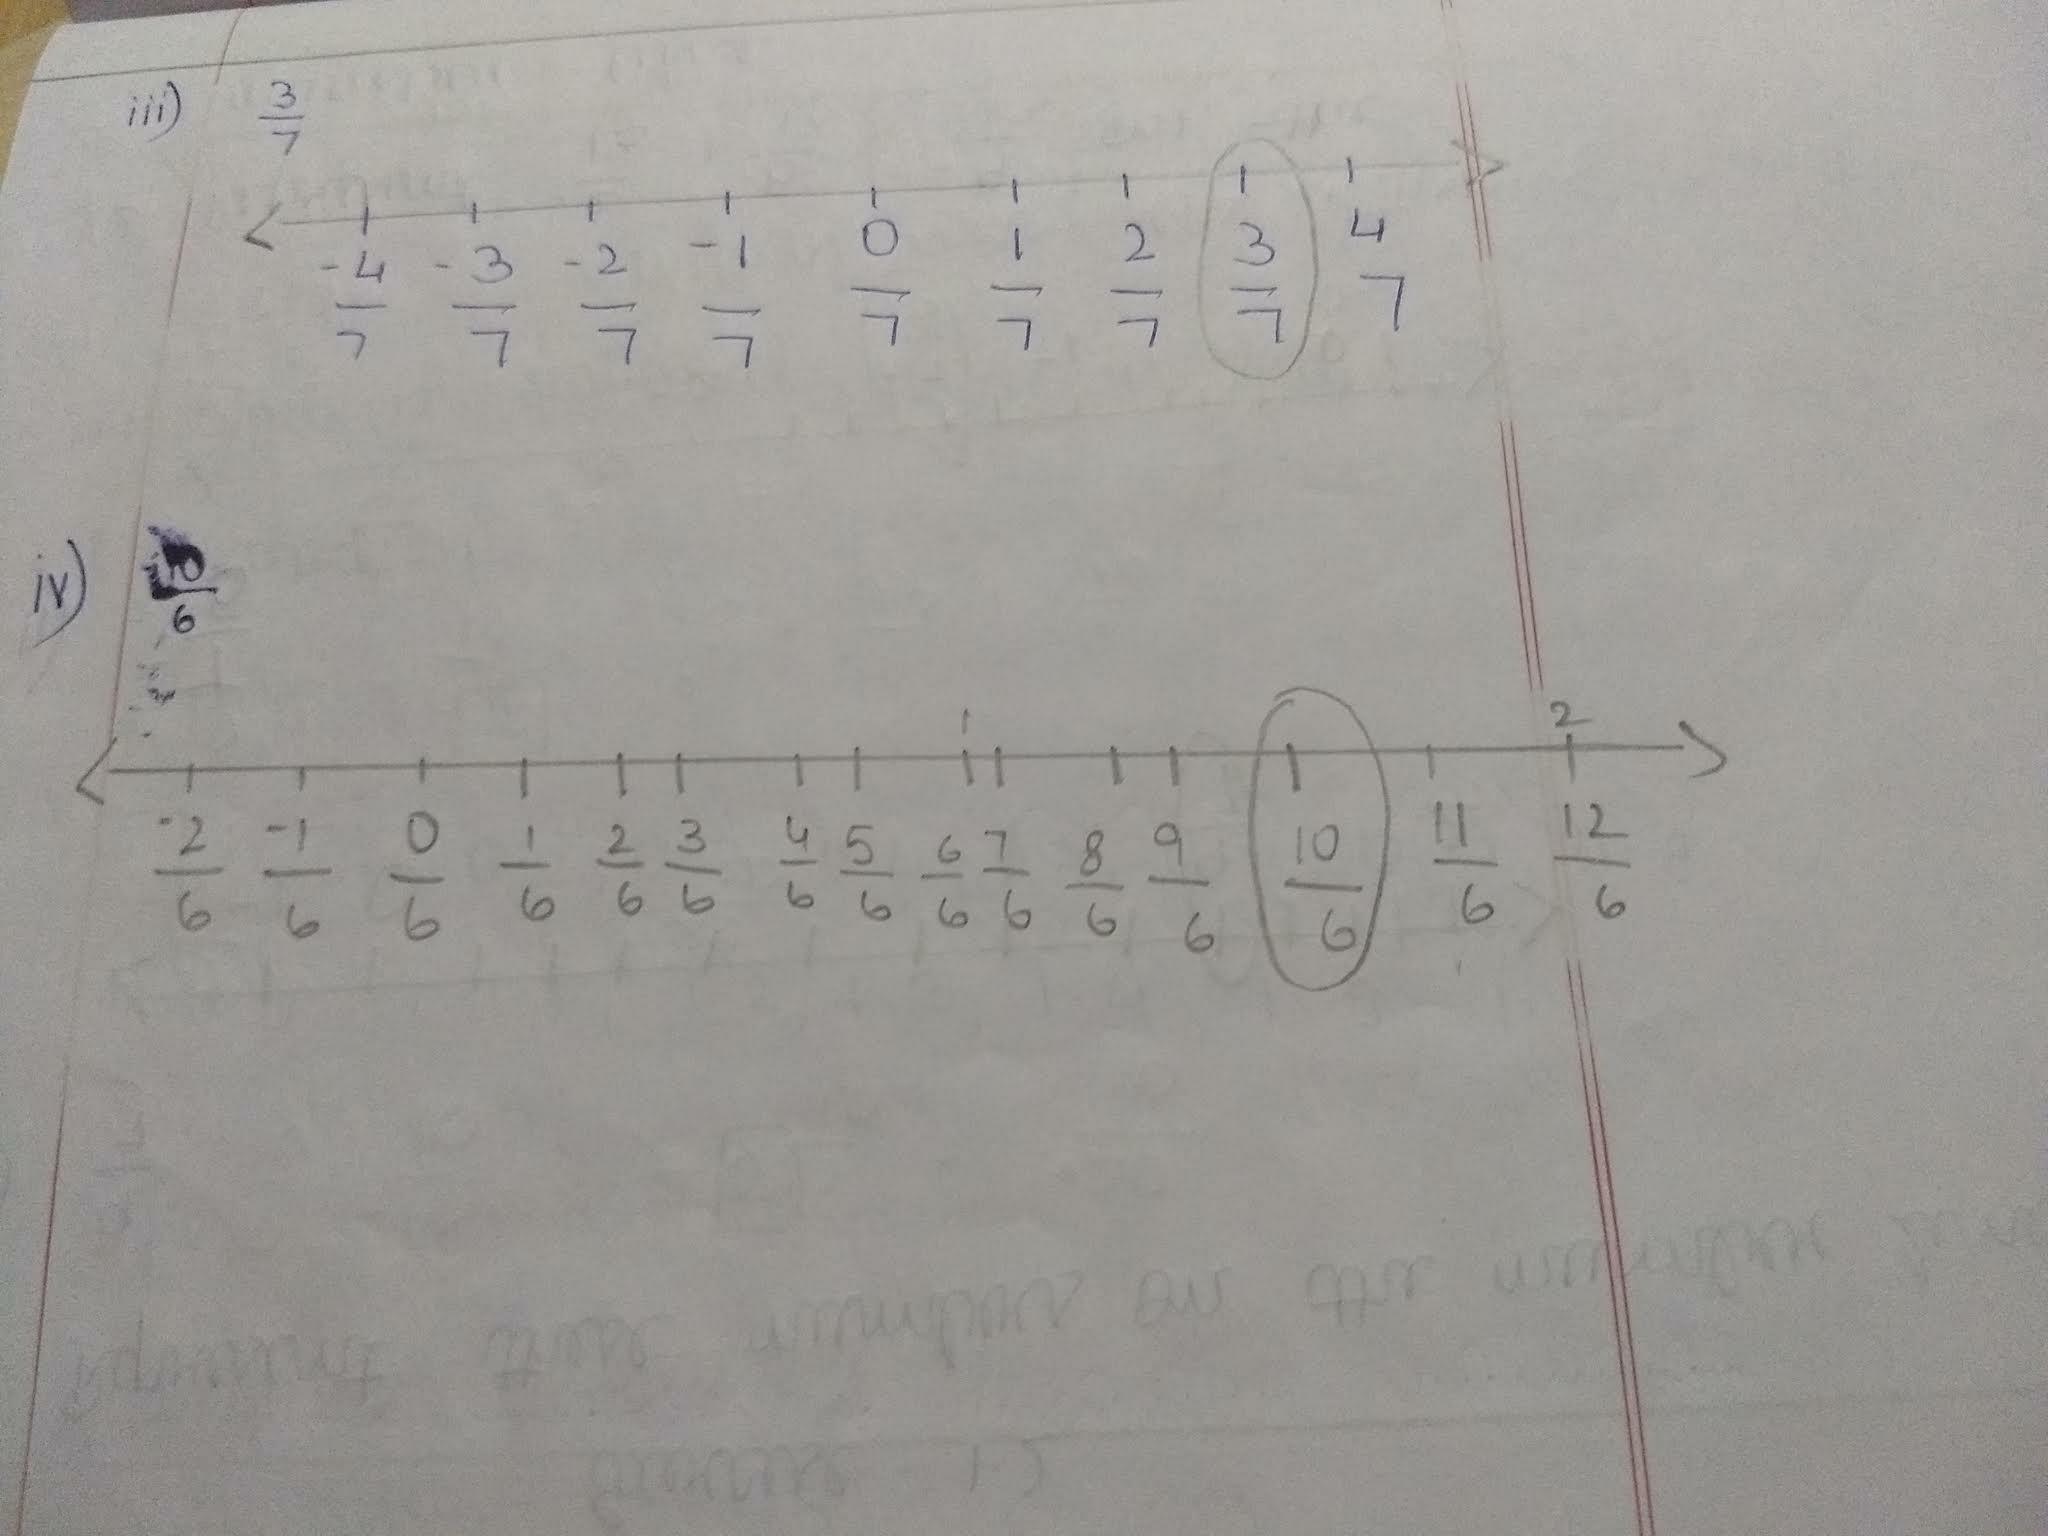 iii) 3/7
-4/7 -3/7 -2/7 -1/7 0/7 1/7 2/7 3/7 4 7
iv) 10/6
1 2
-2/6 -1/6 0/6 1/6 2/6 3/6 4/6 5/6 6/6 7/6 8/6 9/6 10/6 11/6 12/6